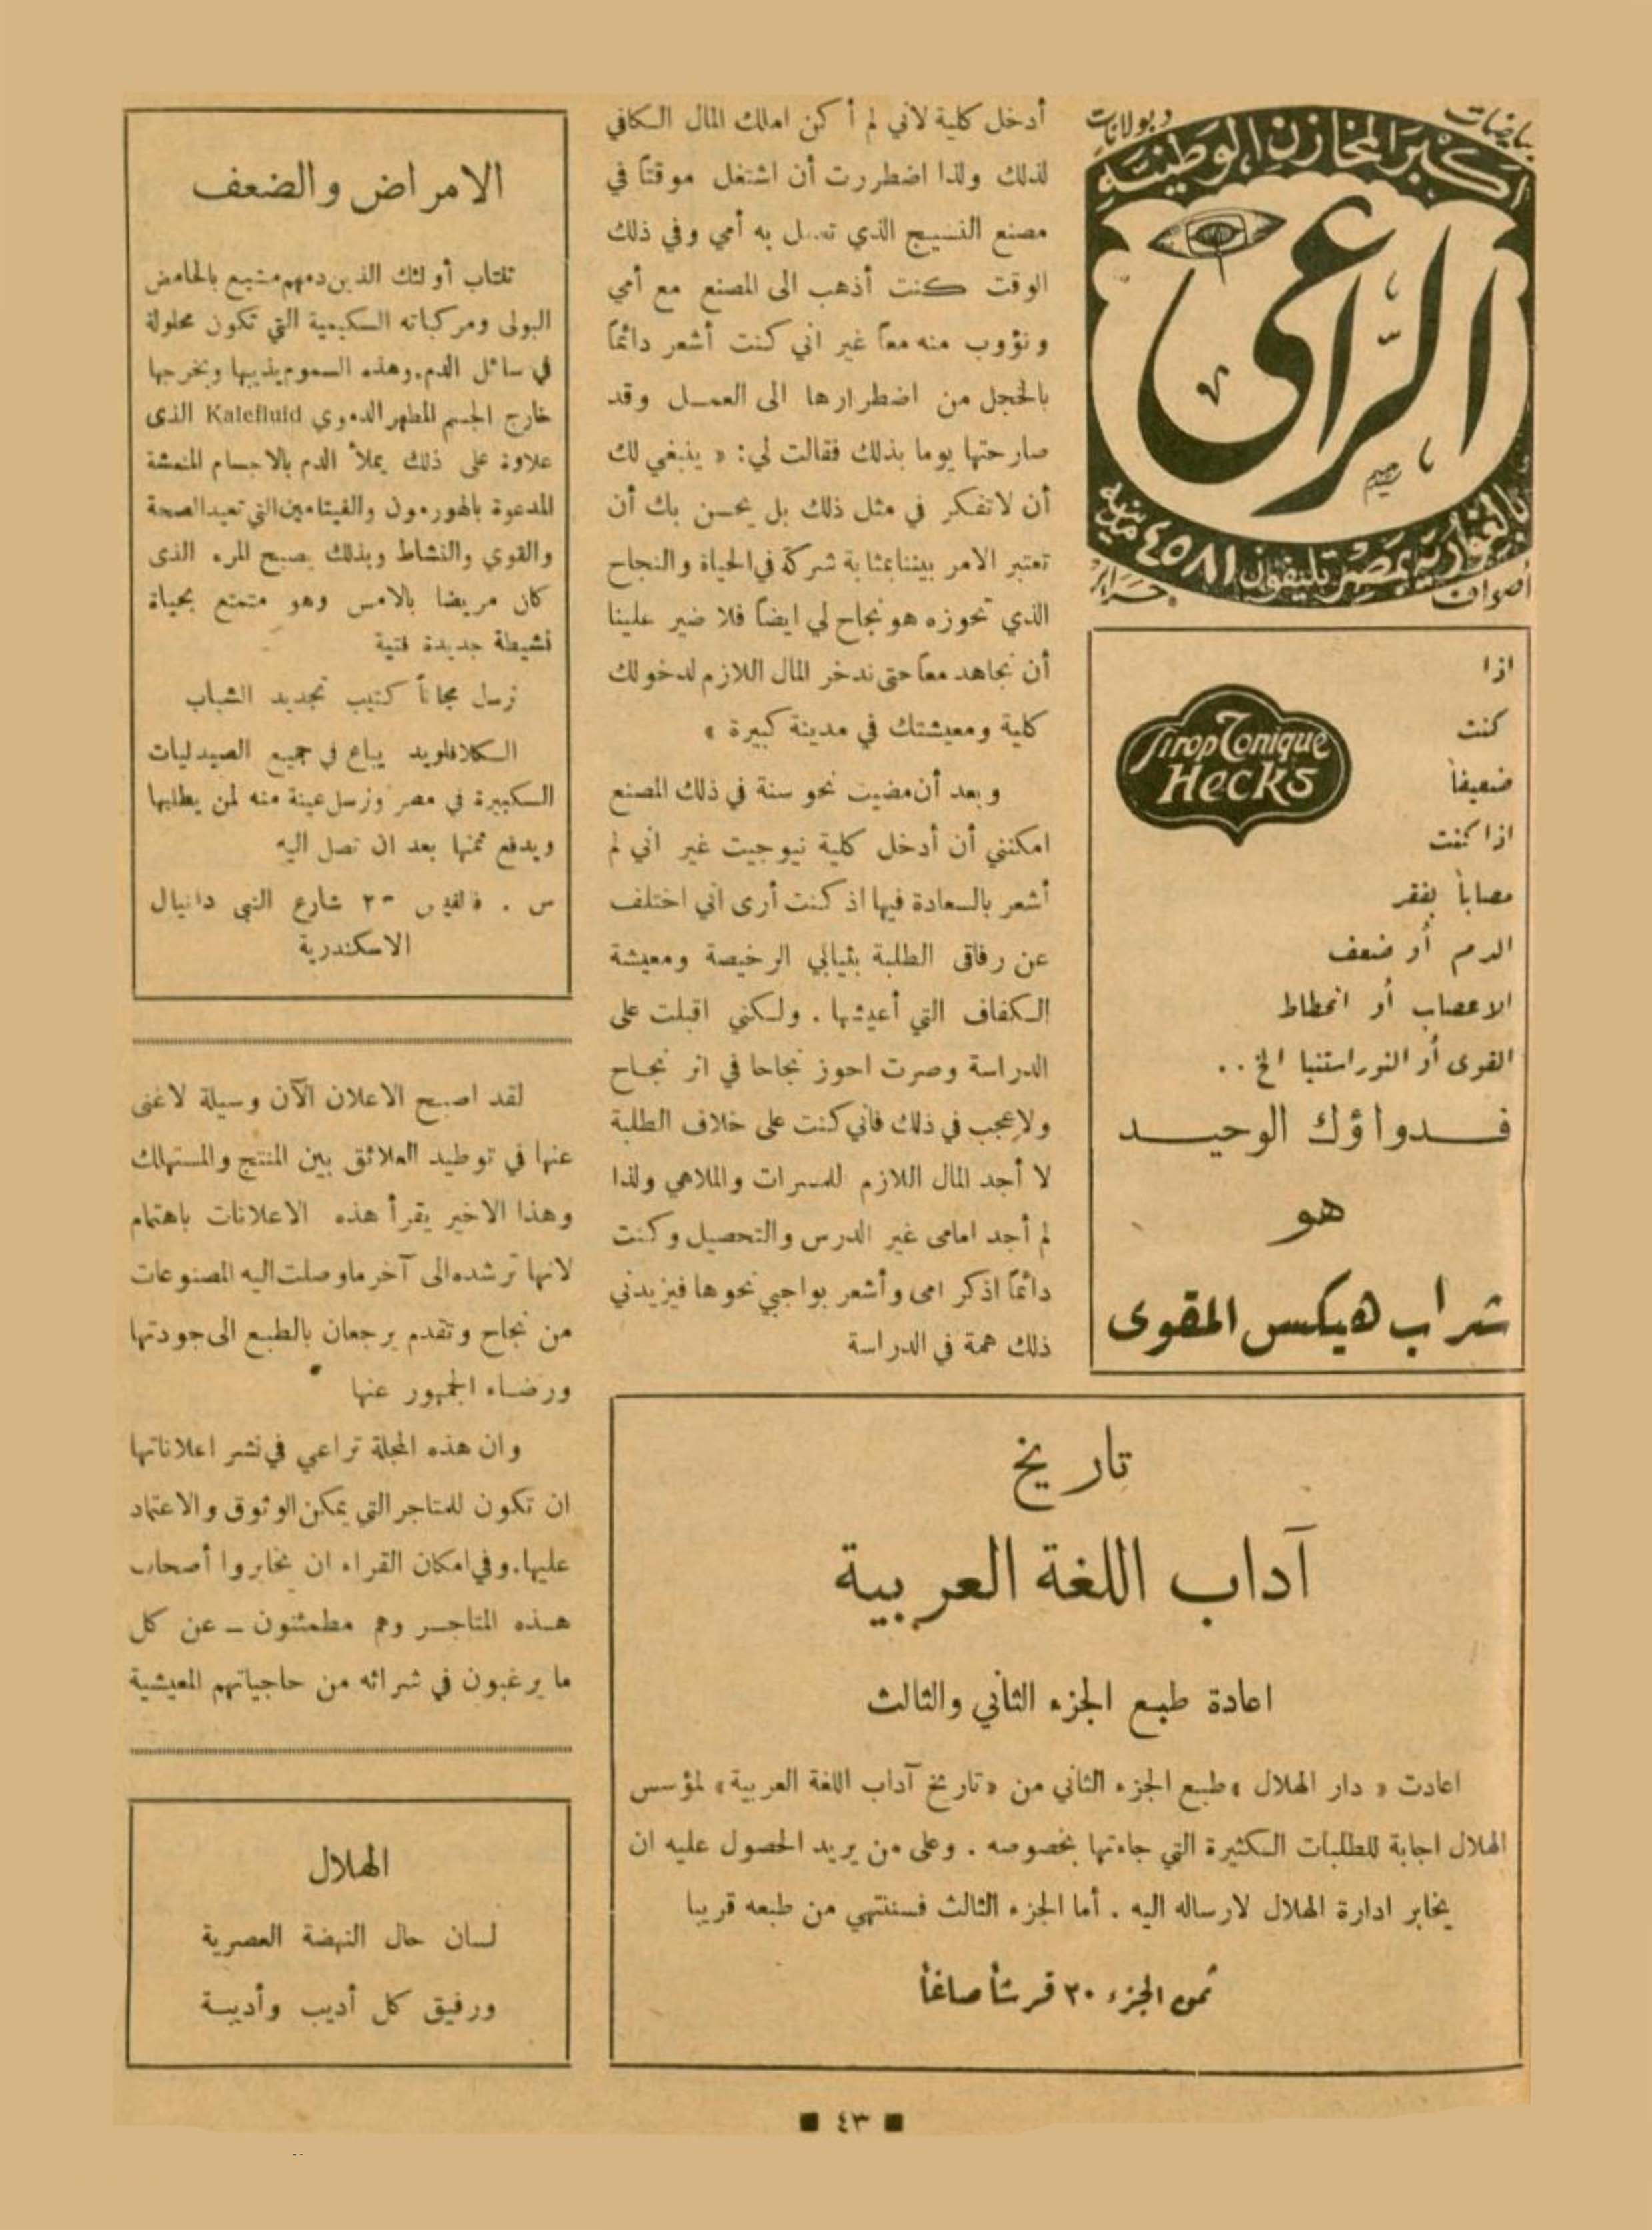 بياضات
وبولانات
أكبر المخازن الوطنية
الراعى
بالغورية بمصر تليفون ٤٥٨١ مدينة
أصواف
حراير
اذا
كنت
ضعيفاً
اذا كنت
مصاباً بفقر
الدم أو ضعف
الاعصاب أو انحطاط
القوى أو النوراستنيا الخ . .
Sirop Tonique
Hecks
فدواؤك الوحيد
هو
شراب هيكس المقوى
أدخل كلية لاني لم أكن املك المال الكافي
لذلك ولذا اضطررت أن اشتغل موقتاً في
مصنع النسيج الذي تعمل به أمي وفي ذلك
الوقت كنت أذهب الى المصنع مع أمي
ونؤوب منه معاً غير اني كنت أشعر دائماً
بالخجل من اضطرارها الى العمل وقد
صارحتها يوما بذلك فقالت لي: « ينبغي لك
أن لا تفكر في مثل ذلك بل يحسن بك أن
تعتبر الامر بيننا بمثابة شركة في الحياة والنجاح
الذي تحوزه هو نجاح لي ايضاً فلا ضير علينا
أن نجاهد معاً حتى ندخر المال اللازم لدخولك
كلية ومعيشتك في مدينة كبيرة »
وبعد أن مضيت نحو سنة في ذلك المصنع
امكنني أن أدخل كلية نيوجيت غير اني لم
أشعر بالسعادة فيها اذ كنت أرى اني اختلف
عن رفاقى الطلبة بثيابي الرخيصة ومعيشة
الكفاف التي أعيشها . ولكني اقبلت على
الدراسة وصرت احوز نجاحا في اثر نجاح
ولا عجب في ذلك فاني كنت على خلاف الطلبة
لا أجد المال اللازم للمسرات والملاهي ولذا
لم أجد امامى غير الدرس والتحصيل وكنت
دائماً اذكر امى وأشعر بواجبي نحوها فيزيدني
ذلك همة في الدراسة
الامراض والضعف
تنتاب أولئك الذين دمهم مشبع بالحامض
البولى ومركباته السكيمية التي تكون محلولة
في سائل الدم. وهذه السموم يذيبها ويخرجها
خارج الجسم المطهر الدموي Kalefluid الذى
علاوة على ذلك يملأ الدم بالاجسام المنعشة
المدعوة بالهورمون والفيتامين التي تعيد الصحة
والقوي والنشاط وبذلك يصبح المرء الذى
كان مريضا بالامس وهو متمتع بحياة
نشيطة جديدة فتية
نرسل مجاناً كتيب تجديد الشباب
الكلافلويد يباع في جميع الصيدليات
الكبيرة في مصر ونرسل عينة منه لمن يطلبها
ويدفع ثمنها بعد ان تصل اليه
شارع النبي دانيال
الاسكندرية
لقد اصبح الاعلان الآن وسيلة لا غنى
عنها في توطيد العلائق بين المنتج والمستهلك
وهذا الاخير يقرأ هذه الاعلانات باهتمام
لانها ترشده الى آخر ما وصلت اليه المصنوعات
من نجاح وتقدم يرجعان بالطبع الى جودتها
ورضاء الجمهور عنها
وان هذه المجلة تراعي في نشر اعلاناتها
ان تكون للمتاجر التي يمكن الوثوق والاعتماد
عليها. وفي امكان القراء ان يخابروا أصحاب
هذه المتاجر وهم مطمئنون ــ عن كل
ما يرغبون في شرائه من حاجياتهم المعيشية
الهلال
لسان حال النهضة العصرية
ورفيق كل أديب وأديبة
تاريخ
آداب اللغة العربية
اعادة طبع الجزء الثاني والثالث
اعادت « دار الهلال » طبع الجزء الثاني من « تاريخ آداب اللغة العربية » لمؤسس
الهلال اجابة للطلبات الكثيرة التي جاءتها بخصوصه . وعلى من يريد الحصول عليه ان
يخابر ادارة الهلال لارساله اليه . أما الجزء الثالث فسننتهي من طبعه قريبا
ثمن الجزء ٣٠ قرشاً صاغاً
٤٣